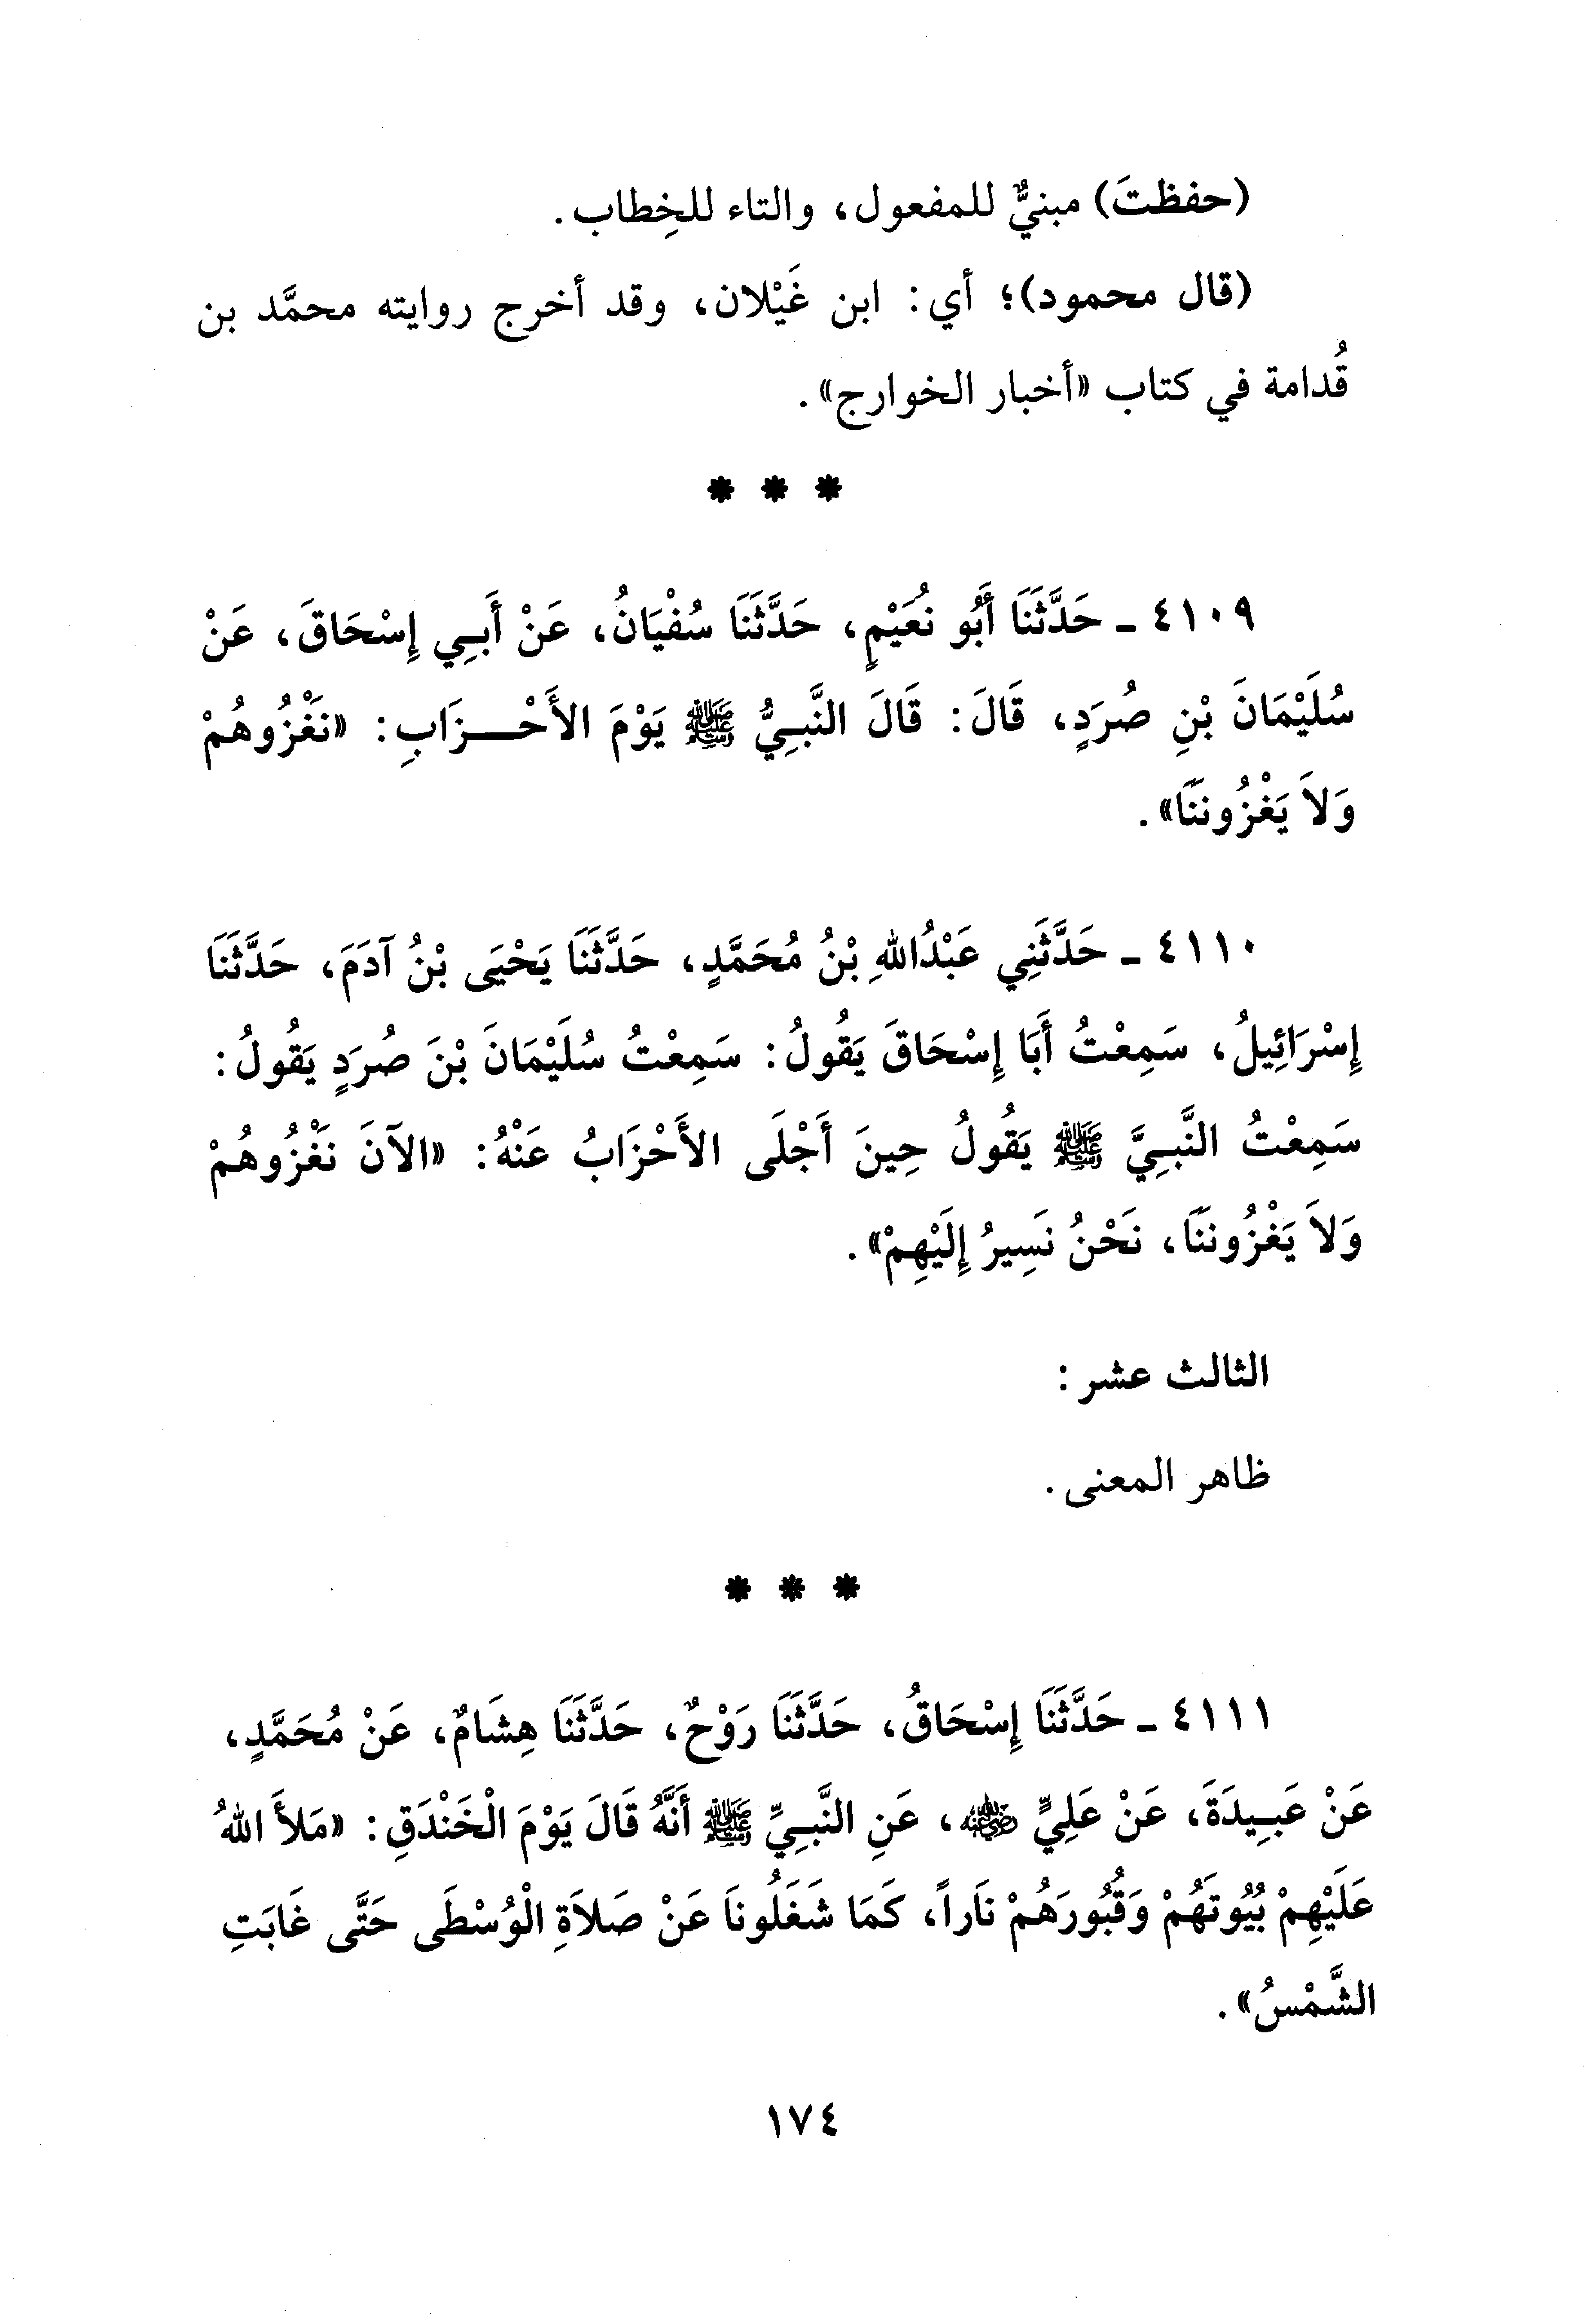 (حفظتَ) مبنيٌّ للمفعول، والتاء للخِطاب.
(قال محمود)؛ أي: ابن غَيْلان، وقد أخرج روايته محمَّد بن
قُدامة في كتاب «أخبار الخوارج».
* * *
٤١٠٩ ـ حَدَّثَنَا أَبُو نُعَيْمٍ، حَدَّثَنَا سُفْيَانُ، عَنْ أَبِي إِسْحَاقَ، عَنْ
سُلَيْمَانَ بْنِ صُرَدٍ، قَالَ: قَالَ النَّبِيُّ ﷺ يَوْمَ الأَحْزَابِ: «نَغْزُوهُمْ
وَلاَ يَغْزُونَنَا».
٤١١٠ ـ حَدَّثَنِي عَبْدُاللهِ بْنُ مُحَمَّدٍ، حَدَّثَنَا يَحْيَى بْنُ آدَمَ، حَدَّثَنَا
إِسْرَائِيلُ، سَمِعْتُ أَبَا إِسْحَاقَ يَقُولُ: سَمِعْتُ سُلَيْمَانَ بْنَ صُرَدٍ يَقُولُ:
سَمِعْتُ النَّبِيَّ ﷺ يَقُولُ حِينَ أَجْلَى الأَحْزَابُ عَنْهُ: «الآنَ نَغْزُوهُمْ
وَلاَ يَغْزُونَنَا، نَحْنُ نَسِيرُ إِلَيْهِمْ».
الثالث عشر:
ظاهر المعنى.
* * *
٤١١١ ـ حَدَّثَنَا إِسْحَاقُ، حَدَّثَنَا رَوْحٌ، حَدَّثَنَا هِشَامٌ، عَنْ مُحَمَّدٍ،
عَنْ عَبِيدَةَ، عَنْ عَلِيٍّ رضي الله عنه، عَنِ النَّبِيِّ ﷺ أَنَّهُ قَالَ يَوْمَ الْخَنْدَقِ: «مَلأَ اللهُ
عَلَيْهِمْ بُيُوتَهُمْ وَقُبُورَهُمْ نَاراً، كَمَا شَغَلُونَا عَنْ صَلاَةِ الْوُسْطَى حَتَّى غَابَتِ
الشَّمْسُ».
١٧٤